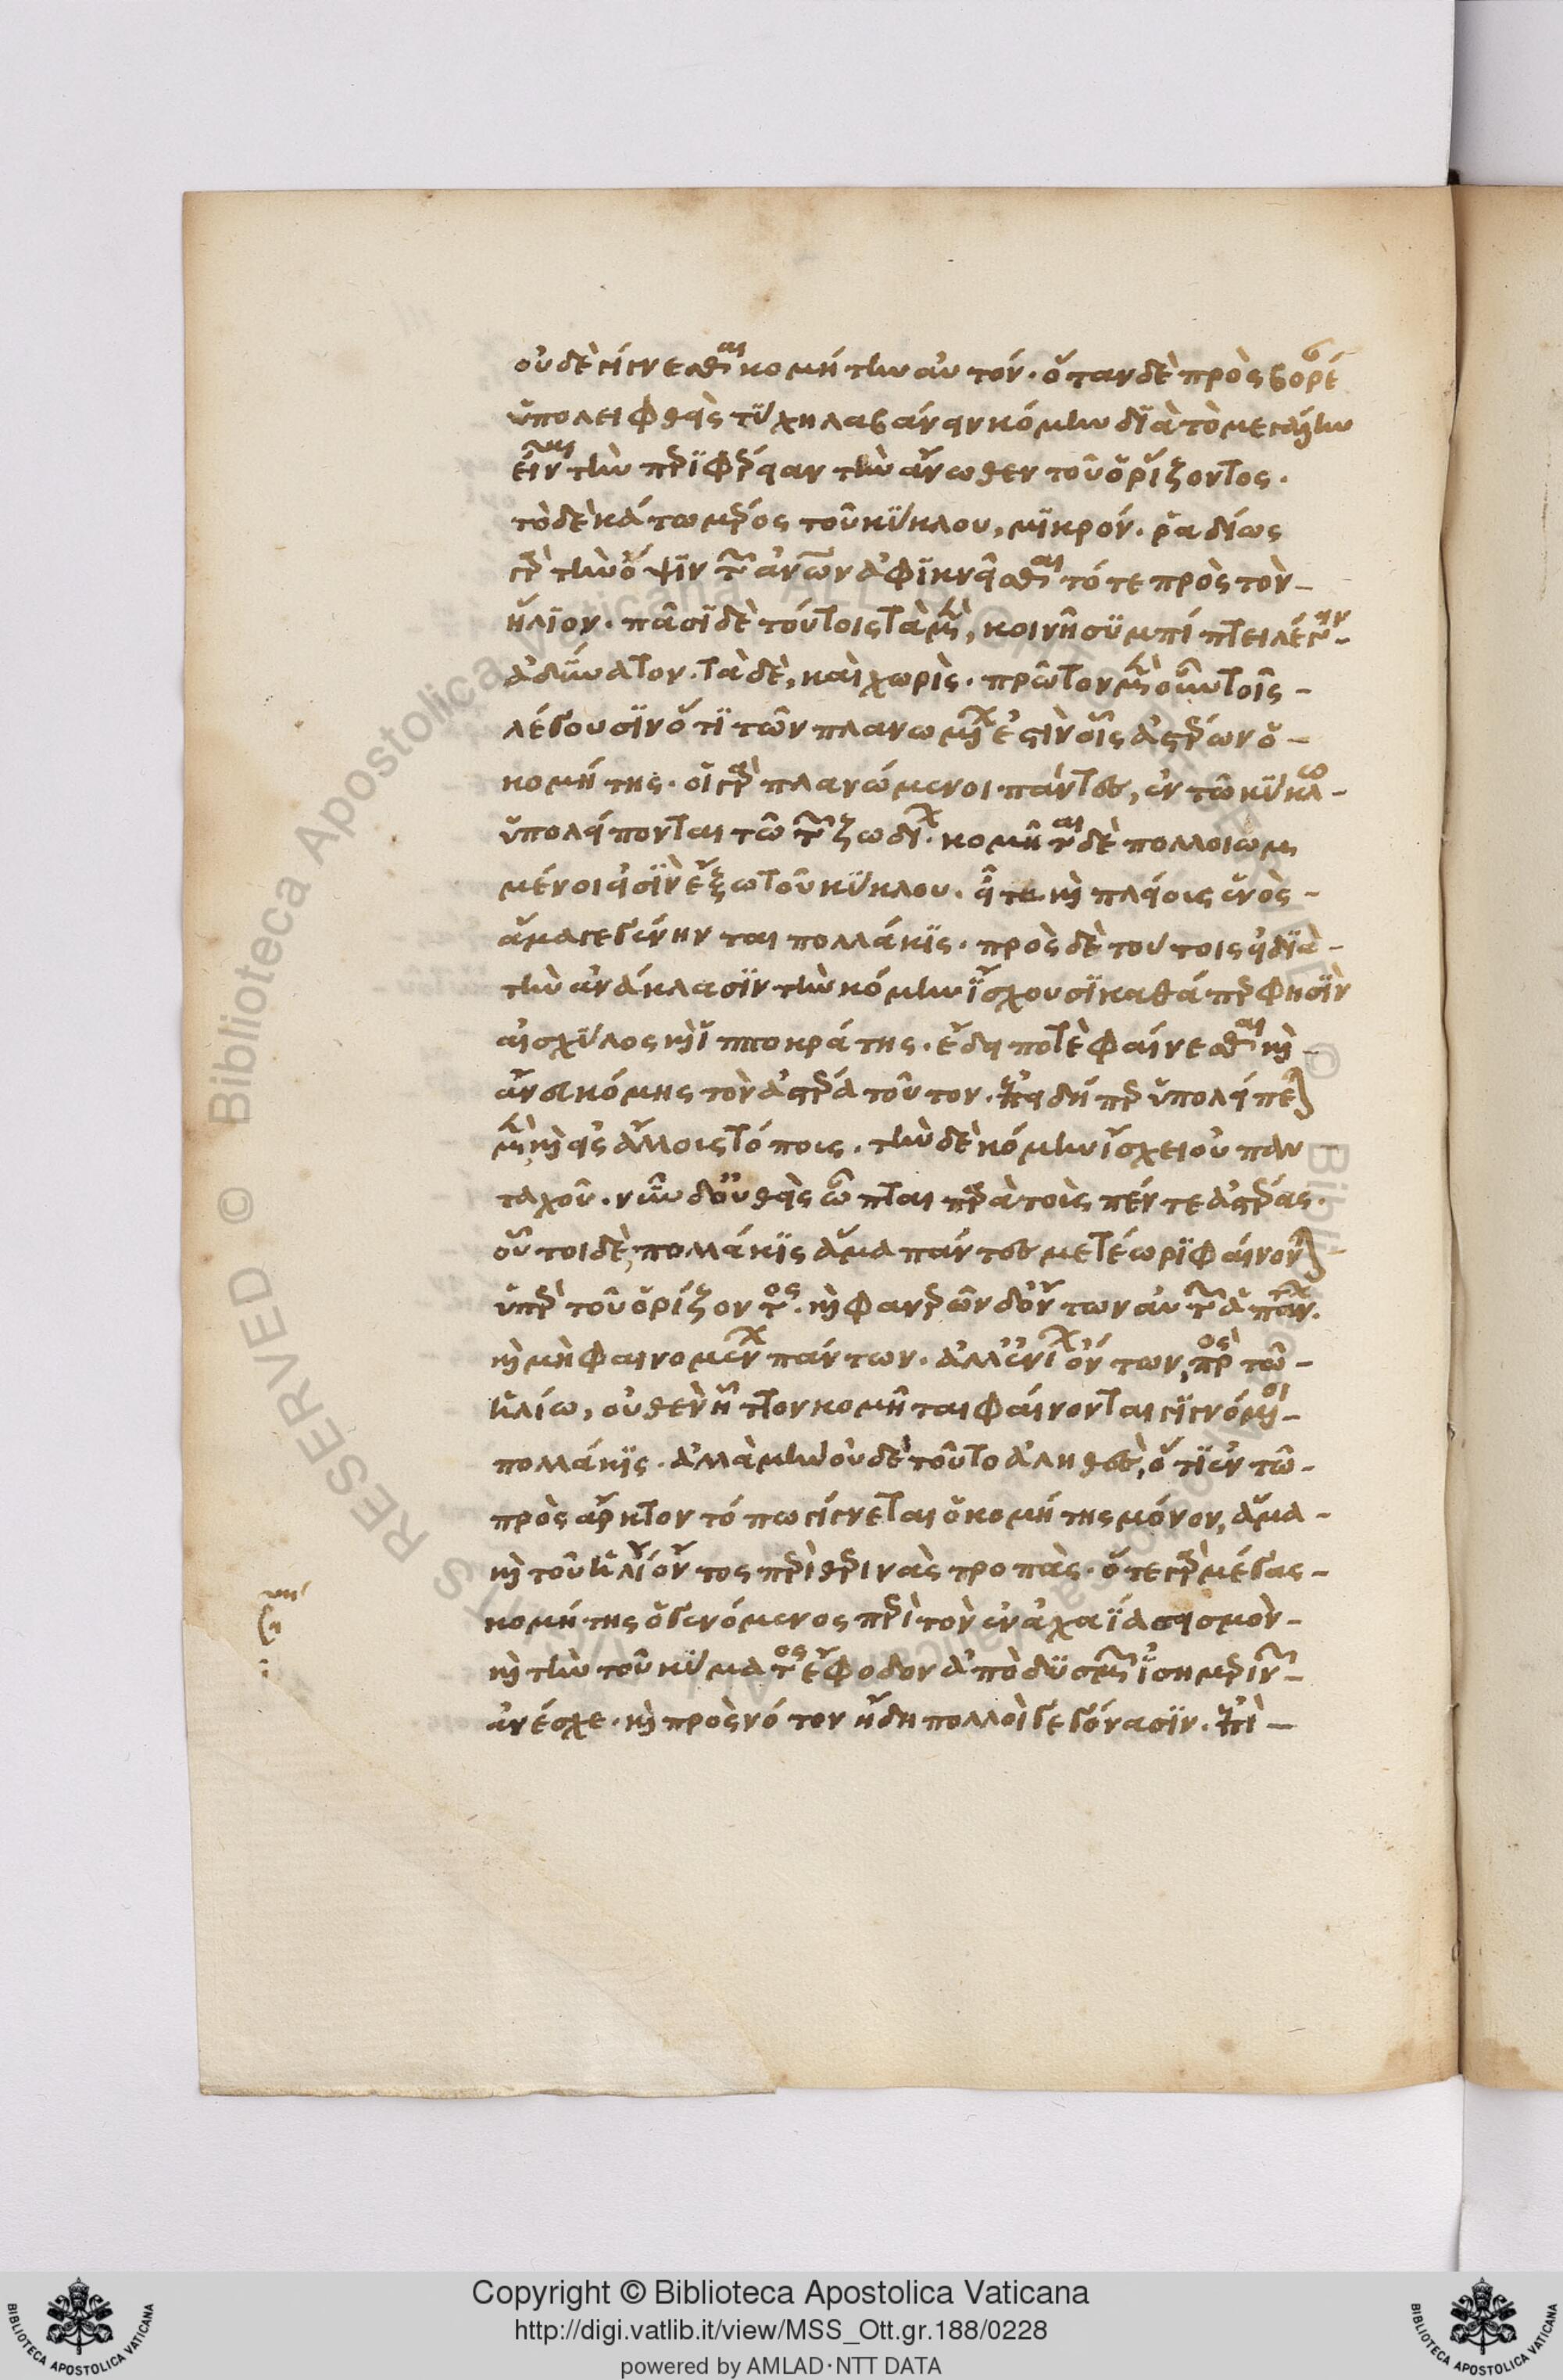 οὐδὲ γίγνεσθαι κομήτην αὐτόν. ὅταν δὲ πρὸς βορέ
ὑπολειφθεὶς τύχη λαβάνειν κόμην διὰ τὸ μεγάλην
εἶναι τὴν περιφέρειαν τὴν ἄνωθεν τοῦ ὁρίζοντος.
τὸ δὲ κάτω μέρος τοῦ κύκλου, μικρόν. ῥαδίως
γὰρ τὴν ὄψιν τῶν ἀνων ἀφικνεῖσθαι τότε πρὸς τὸν
ἥλιον. πᾶσι δὲ τούτοις τὰ μὲν, κοινῆ συμπίπτει λέγειν
ἀδύνατον. τὰ δὲ, καὶ χωρίς. πρῶτον μὲν οὖν τοῖς
λέγουσιν ὅτι τῶν πλανωμένων ἐστὶν οἷς ἀστέρων ὁ
κομήτης. οἱ γὰρ πλανώμενοι πάντες, ἐν τῶ κύκλω
ὑπολείπονται τῶ τῶν ζωδίων. κομῆται δὲ πολλοὶ ὠμ
μένοι εἰσὶν ἔξω τοῦ κύκλου. εἶτα καὶ πλείοις ἑνὸς
ἅμα γεγένηνται πολλάκις. πρὸς δὲ τούτοις εἰ διὰ
τὴν ἀνάκλασιν τὴν κόμην ἴσχουσι καθάπερ φησὶν
αἰσχύλος καὶ ἱπποκράτης. ἔδει ποτὲ φαίνεσθαι καὶ
ἄνευ κόμης τὸν ἀστέρα τοῦτον. ἐπειδήπερ ὑπολείπεται
μὲν καὶ εἰς ἄλλοις τόποις. τὴν δὲ κόμην ἴσχει οὐ παν
ταχοῦ. νῦν δ' οὐθεὶς ὦπται παρὰ τοὶς πέντε ἀστέρας.
οὗτοι δὲ, πολλάκις ἅμα πάντες μετέωροι φαίνονται
ὑπὲρ τοῦ ὁρίζοντος. καὶ φανερῶν δ' ὄντων αὐτῶν ἁπάντων.
καὶ μὴ φαινομένων πάντων. ἀλλ' ἐνίων ὄντων, πρὸς τῶ
ἡλίω, οὐθὲν ἧττον κομῆται φαίνονται γιγνόμενοι
πολλάκις. ἀλλὰ μὴν οὐδὲ τοῦτο ἀληθὲς, ὅτι ἐν τῶ
πρὸς ἄρκτον τόπω γίγνεται ὁ κομήτης μόνον, ἅμα
καὶ τοῦ ἡλίου ὄντος περὶ θερινὰς τροπάς. ὅ τε γὰρ μέγας
κομήτης ὁ γενόμενος περὶ τὸν ἐν ἀχαΐα σεισμὸν
καὶ τὴν τοῦ κύματος ἔφοδον ἀπὸ δυσμῶν ἰσημερινῶν
ἀνέσχε. καὶ πρὸς νότον ἤδη πολλοὶ γεγόνασιν. ἐπὶ